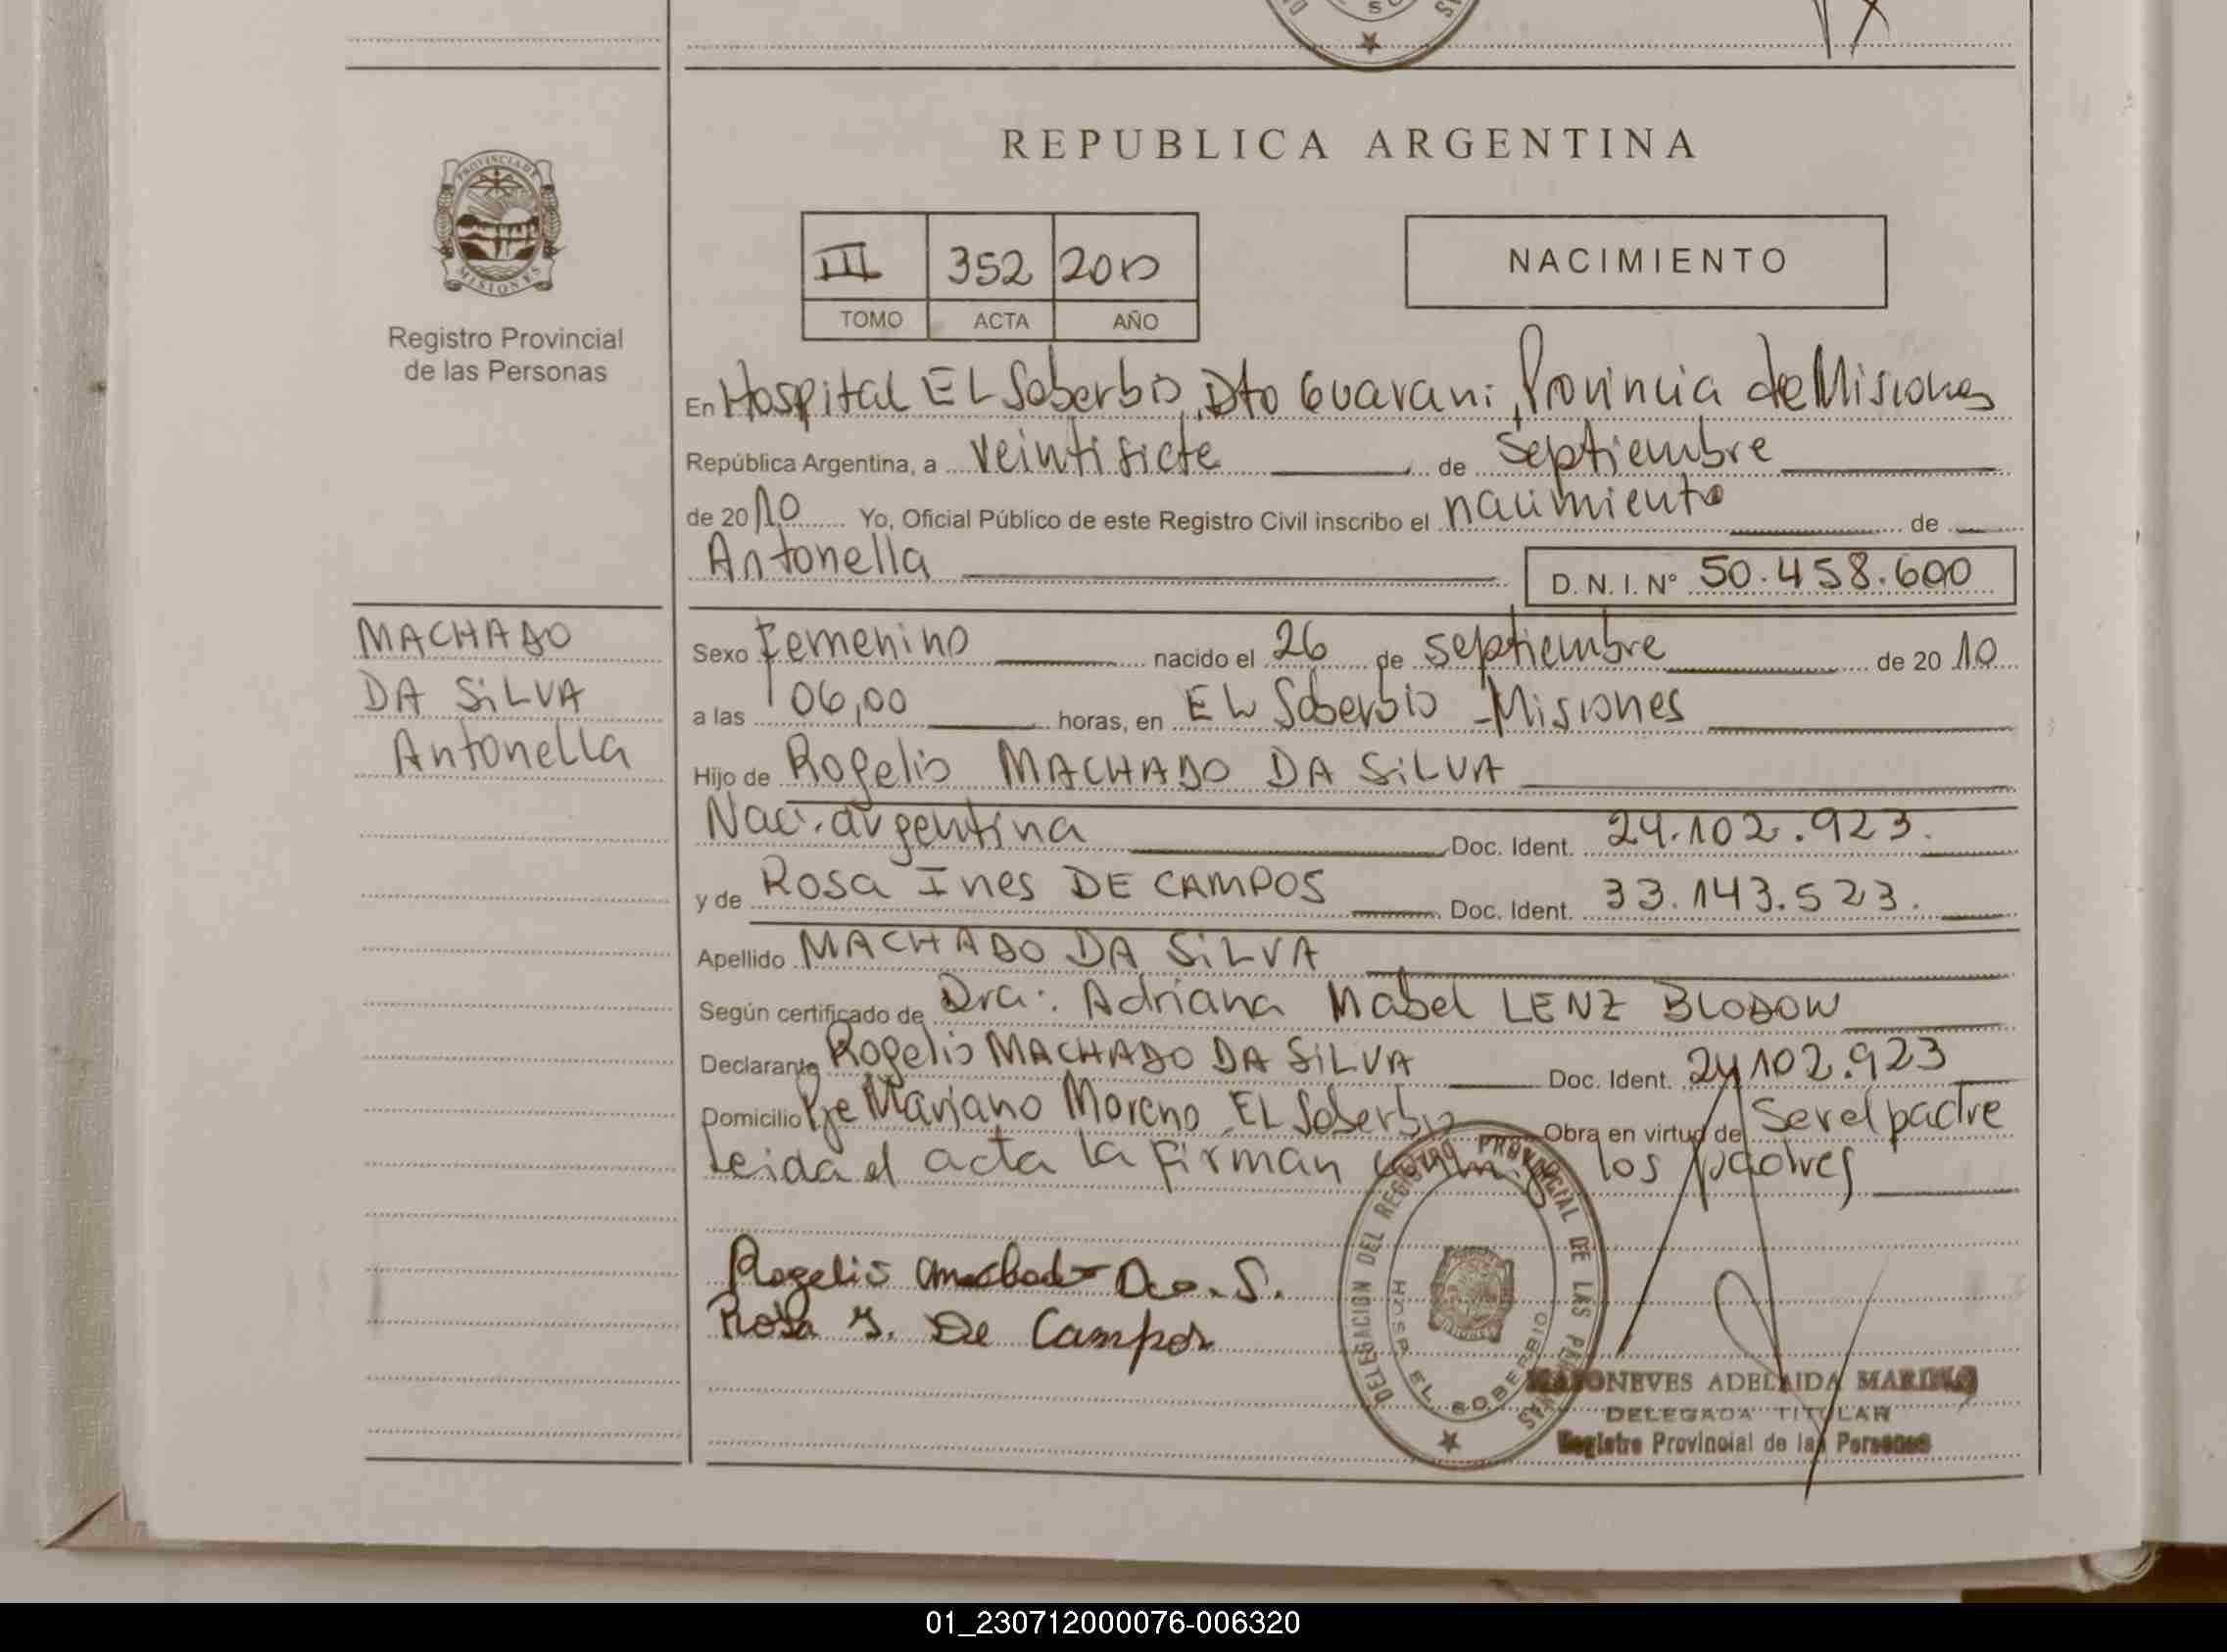 REPUBLICA ARGENTINA
PROVINCIA DE
MISIONES
Registro Provincial
de las Personas
III 352 2010
TOMO ACTA AÑO
NACIMIENTO
En Hospital EL Soberbio, Dto Guarani, Provincia de Misiones
República Argentina, a veintisiete de septiembre
de 2010 Yo, Oficial Público de este Registro Civil inscribo el nacimiento de
Antonella
D. N. I. Nº 50.458.600
MACHADO
DA SiLVA
Antonella
Sexo Femenino nacido el 26 de septiembre de 2010
a las 06,00 horas, en EL Soberbio - Misiones
Hijo de Rogelio MACHADO DA SiLVA
Nac. argentina Doc. Ident. 24.102.923.
y de Rosa Ines DE CAMPOS Doc. Ident. 33.143.523.
Apellido MACHADO DA SiLVA
Según certificado de Dra: Adriana Mabel LENZ BLODOW
Declarante Rogelio MACHADO DA SiLVA Doc. Ident. 24.102.923
Domicilio Pje Mariano Moreno EL Soberbio Obra en virtud de Ser el padre
Leida el acta la firman los padres
Rogelio Machado Da. S.
Rosa I. De Campos
DELEGACION DEL REGISTRO PROVINCIAL DE LAS PERSONAS
EL SOBERBIO
ADELAIDA
DELEGADA TITULAR
Registro Provincial de las Personas
01_230712000076-006320